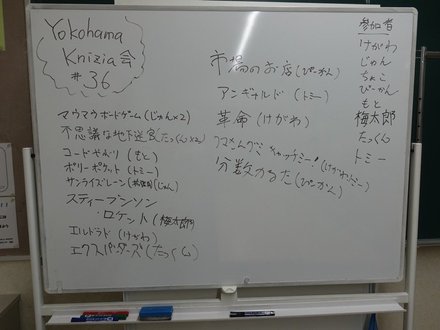 Yokohama
Knizia会
#36
マウマウボードゲーム(じゃん×2)
不思議な地下迷宮(たっくん×2)
コードせべり(もと)
ポリーポケット(トミー)
サンライズレーン(じゅん)
スティーブンソン
・ロケット(梅太郎)
エルドラド(けがわ)
エクスパンダーズ(たっくん)
市場のお店(ぴーかん)
アンギャルド(トミー)
革命(けがわ)
キャッチミー!(けがわ・トミー)
分数かるた(ぴーかん)
参加者
けがわ
じゅん
ちょこ
ぴーかん
もと
梅太郎
たっくん
トミー